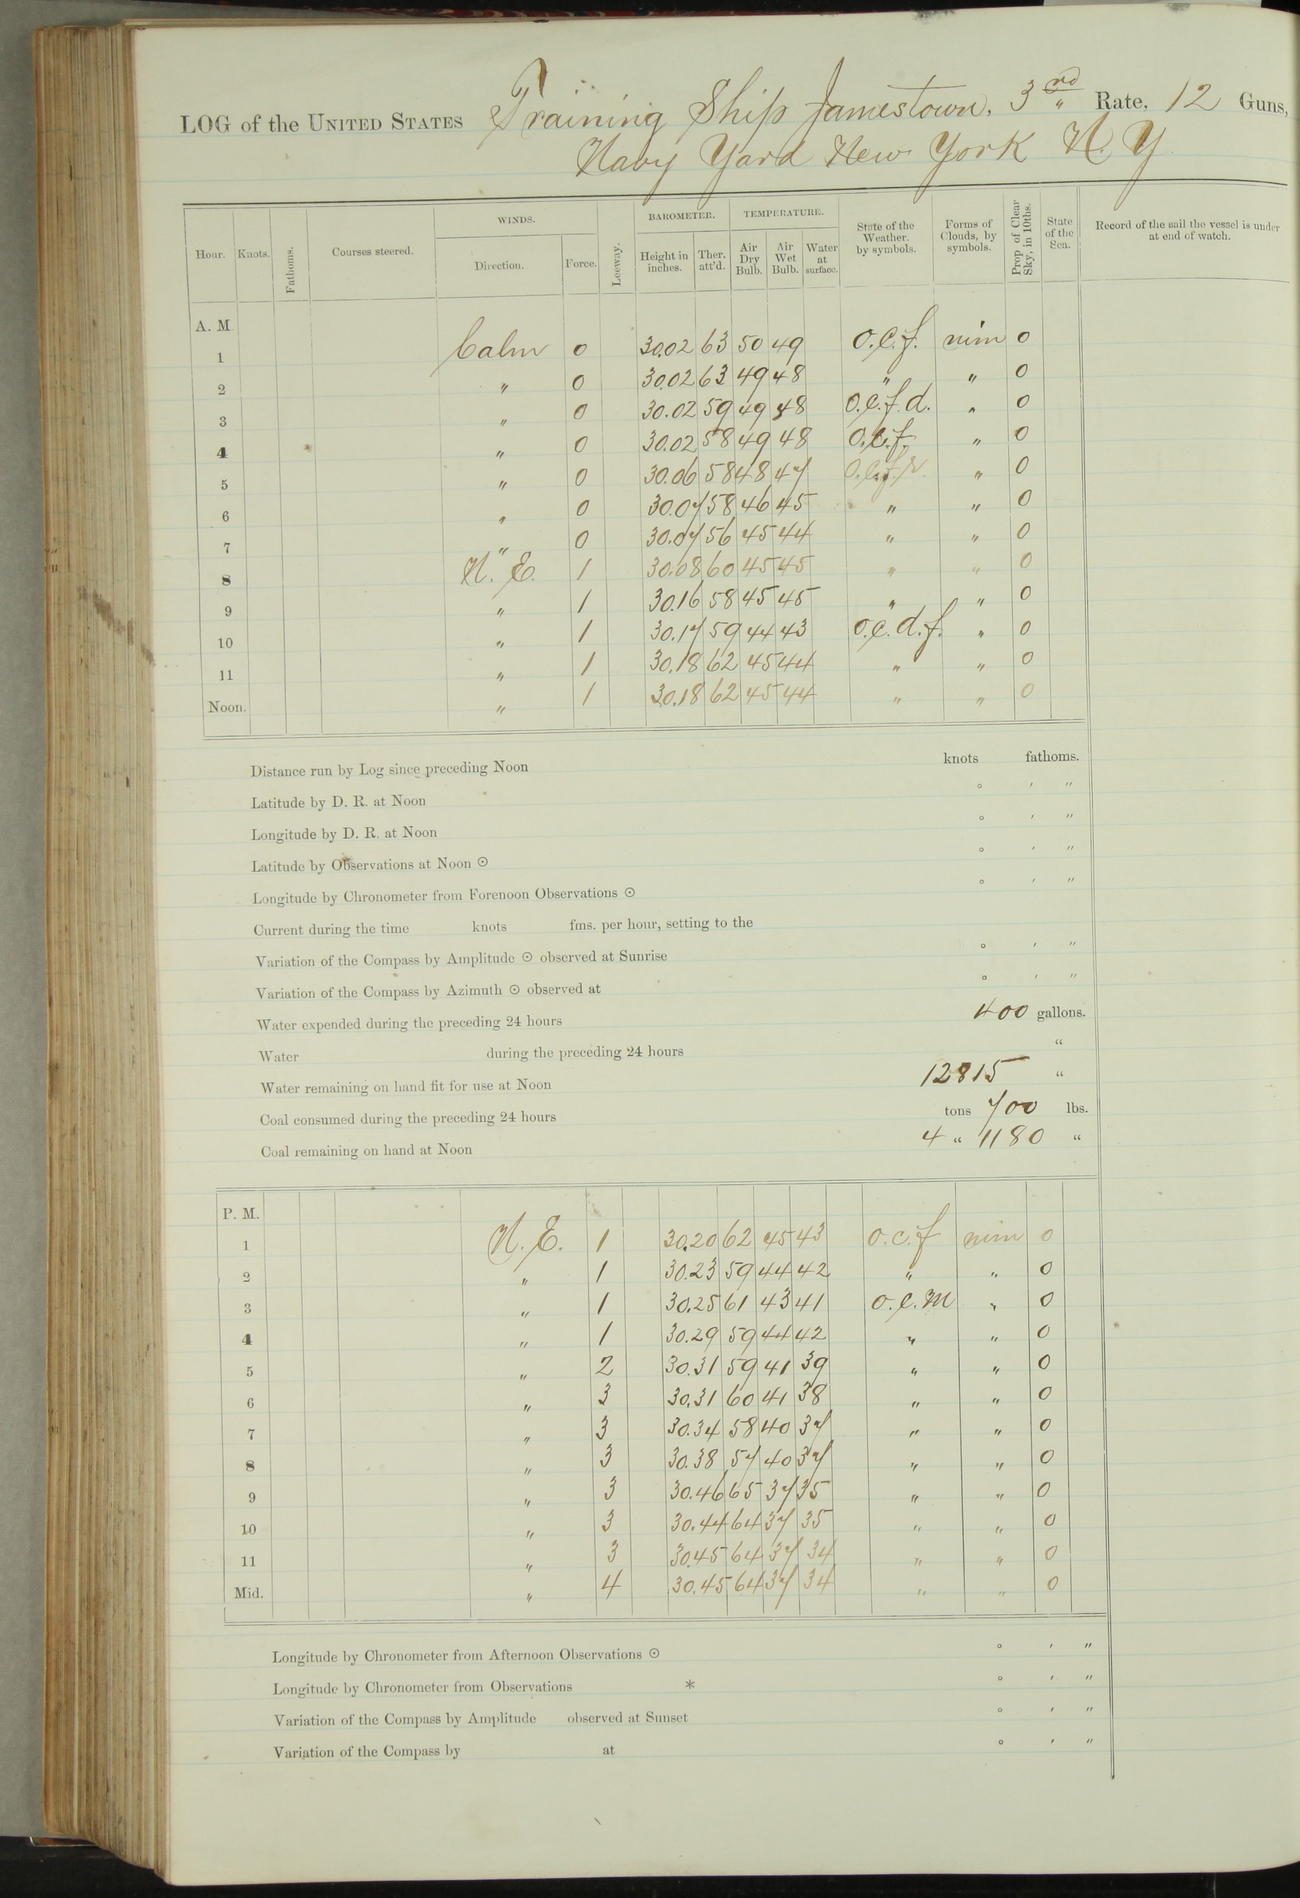 LOG of the UNITED STATES Training Ship Jamestown, 3rd Rate, 12 Guns,
Navy Yard New York N. Y
Hour. Knots. Fathoms. Courses steered. WINDS. Direction. Force. Leeway. BAROMETER. Height in inches. Ther. att'd. TEMPERATURE. Air Dry Bulb. Air Wet Bulb. Water at surface. State of the Weather. by symbols. Forms of Clouds, by symbols. Prop. of Clear Sky, in 10ths. State of the Sea. Record of the sail the vessel is under at end of watch.
A. M.
1 Calm 0 30.02 63 50 49 o.c.f. nim 0
2 " 0 30.02 63 49 48 " " 0
3 " 0 30.02 59 49 48 o.c.f.d. " 0
4 " 0 30.02 58 49 48 o.c.f. " 0
5 " 0 30.06 58 48 47 o.c.f.r. " 0
6 " 0 30.07 58 46 45 " " 0
7 " 0 30.07 56 45 44 " " 0
8 N. E. 1 30.08 60 45 45 " " 0
9 " 1 30.16 58 45 45 " " 0
10 " 1 30.17 59 44 43 o.c.d.f. " 0
11 " 1 30.18 62 45 44 " " 0
Noon. " 1 30.18 62 45 44 " " 0
Distance run by Log since preceding Noon knots fathoms.
Latitude by D. R. at Noon ° ' "
Longitude by D. R. at Noon ° ' "
Latitude by Observations at Noon ☉ ° ' "
Longitude by Chronometer from Forenoon Observations ☉ ° ' "
Current during the time knots fms. per hour, setting to the
Variation of the Compass by Amplitude ☉ observed at Sunrise ° ' "
Variation of the Compass by Azimuth ☉ observed at ° ' "
Water expended during the preceding 24 hours 400 gallons.
Water during the preceding 24 hours "
Water remaining on hand fit for use at Noon 12815 "
Coal consumed during the preceding 24 hours tons 700 lbs.
Coal remaining on hand at Noon 4 " 1180 "
P. M.
1 N. E. 1 30.20 62 45 43 o.c.f nim 0
2 " 1 30.23 59 44 42 " " 0
3 " 1 30.25 61 43 41 o.c.m " 0
4 " 1 30.29 59 44 42 " " 0
5 " 2 30.31 59 41 39 " " 0
6 " 3 30.31 60 41 38 " " 0
7 " 3 30.34 58 40 37 " " 0
8 " 3 30.38 57 40 37 " " 0
9 " 3 30.46 65 37 35 " " 0
10 " 3 30.44 64 37 35 " " 0
11 " 3 30.45 64 37 34 " " 0
Mid. " 4 30.45 64 37 34 " " 0
Longitude by Chronometer from Afternoon Observations ☉ ° ' "
Longitude by Chronometer from Observations * ° ' "
Variation of the Compass by Amplitude observed at Sunset ° ' "
Variation of the Compass by at ° ' "